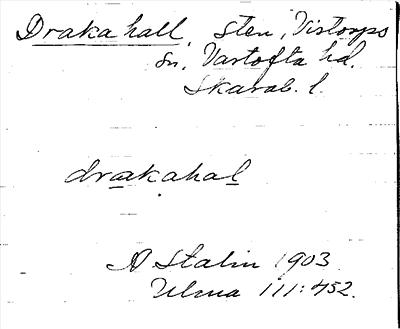 Draka hall, sten, Vistorps
sn, Vartofta hd.
Skarab. l.
drakahal
A Stalin 1903
Ulma 111:452.